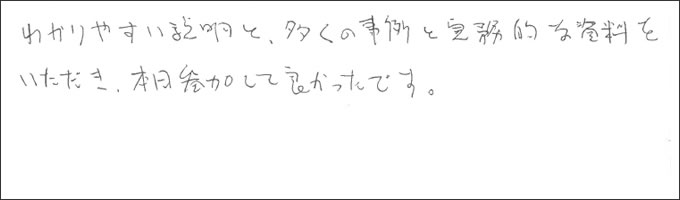 わかりやすい説明と、多くの事例と実務的な資料を
いただき、本日参加して良かったです。